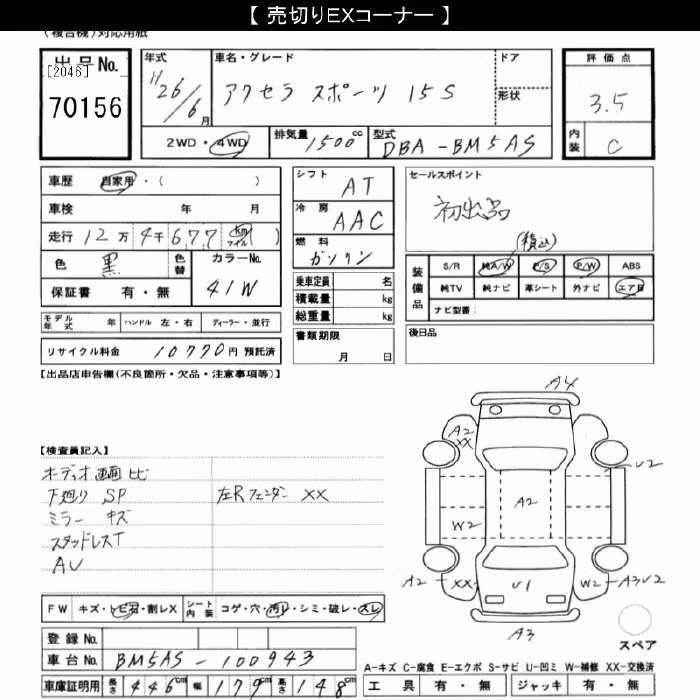 【 売切りEXコーナー 】
(複合機)対応用紙
出品No. [2046] 70156
年式 H26/6月
車名・グレード アクセラ スポーツ 15S
ドア
形状
評価点 3.5
内装 C
2WD・4WD
排気量 1500cc
型式 DBA-BM5AS
車歴 自家用・( )
車検 年 月
走行 12万4千677 km マイル ( )
色 黒 色替
カラーNo. 41W
保証書 有・無
シフト AT
冷房 AAC
燃料 ガソリン
乗車定員 名
積載量 kg
総重量 kg
書類期限 月 日
セールスポイント
初出品
(積込)
装備品
S/R 純A/W P/S P/W ABS
純TV 純ナビ 革シート 外ナビ エアB
ナビ型番:
後日品
モデル年式 年 ハンドル 左・右 ディーラー・並行
リサイクル料金 10770円 預託済
【出品店申告欄(不良箇所・欠品・注意事項等)】
【検査員記入】
オーディオ画面ヒビ
下廻り SP
左Rフェンダー XX
ミラー キズ
スタッドレスT
AU
A4
A2
XX
U2
A2
W2
A2 XX
U1
W2 A3U2
A3
スペア
FW キズ・トビ石・割レX
シート内装 コゲ・穴・汚レ・シミ・破レ・スレ
登録No.
車台No. BM5AS-100943
車庫証明用 長さ 446cm 幅 179cm 高さ 148cm
A-キズ C-腐食 E-エクボ S-サビ U-凹ミ W-補修 XX-交換済
工具 有・無 ジャッキ 有・無